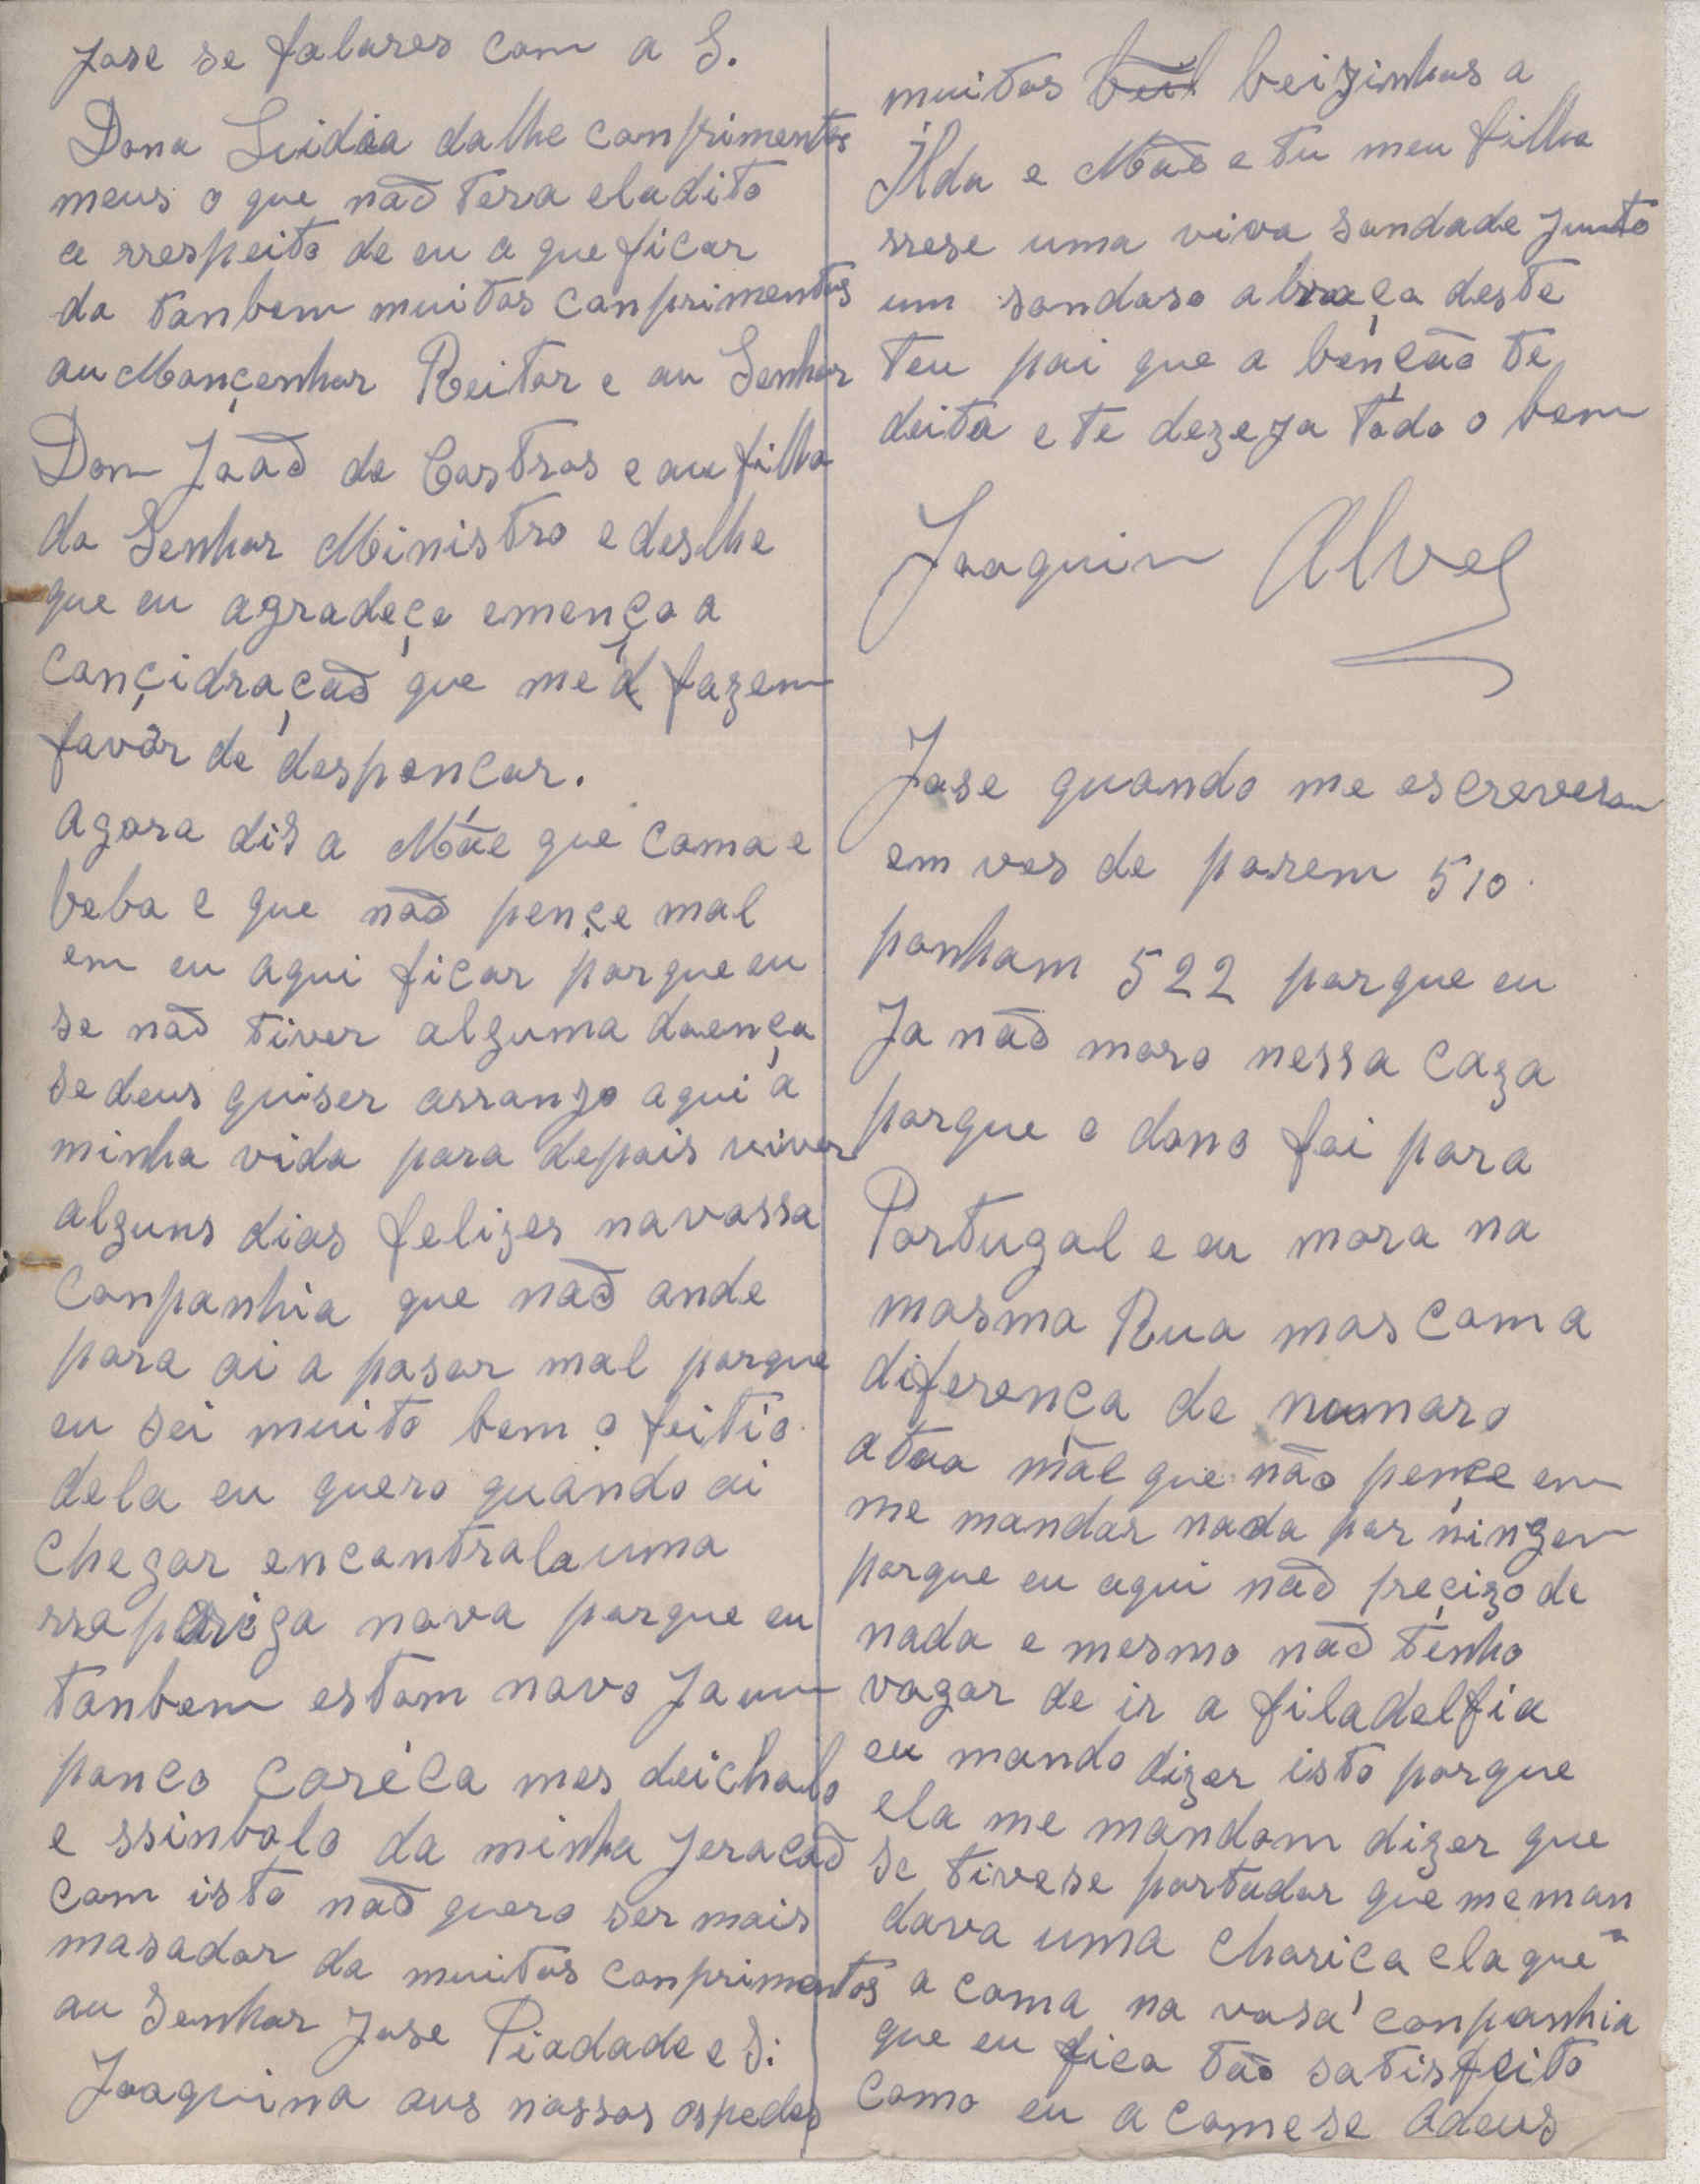 Jose se falares com a S.
Dona Luidia dalhe conprimentos
meus o que não tera eladito
a rrespeito de eu a que ficar
da tanbem muitos conprimentos
au Monçenhor Reitor e au Senhor
Dom João de Castros e au filho
do Senhor Ministro e deslhe
que eu agradeçe emenço a
Conçidração que me fazem
favor de despençar.
Agora dis a Mãe que coma e
beba e que não pençe mal
em eu aqui ficar porque eu
se não tiver alguma doença
se deus quiser arranjo aqui a
minha vida para depois viver
alguns dias felizes na vossa
Conpanhia que não ande
para ai a pasar mal porque
eu sei muito bem o feitio
dela eu quero quando ai
chegar encontrala uma
rrapariga nova porque eu
tanbem estom novo Ja um
pouco caréca mes deichalo
e ssinbolo da minha Jeração
com isto não quero ser mais
masador da muitos conprimentos
au Senhor Jose Piadade e S:
Joaquina aus nossos ospedes
muitos beizinhos a
Ilda e Mãe e tu meu filho
rrese uma viva saudade Junto
um saudoso abraço deste
teu pai que a benção te
deita e te dezeja tódo o bem
Joaquim Alves
Jose quando me escreverem
em ves de porem 510
ponham 522 porque eu
Ja não moro nessa caza
porque o dono foi para
Portugal e eu moro na
mosma Rua mas com a
diferença de numaro
a tua mãe que não pençe em
me mandar nada por ningem
porque eu aqui não preçizo de
nada e mesmo não tenho
vagar de ir a filadelfia
eu mando dizer isto porque
ela me mandom dizer que
se tivese portador que me man
dava uma choriça ela que
a coma na vosa conpanhia
que eu fico tão satisfeito
como eu a comese adeus